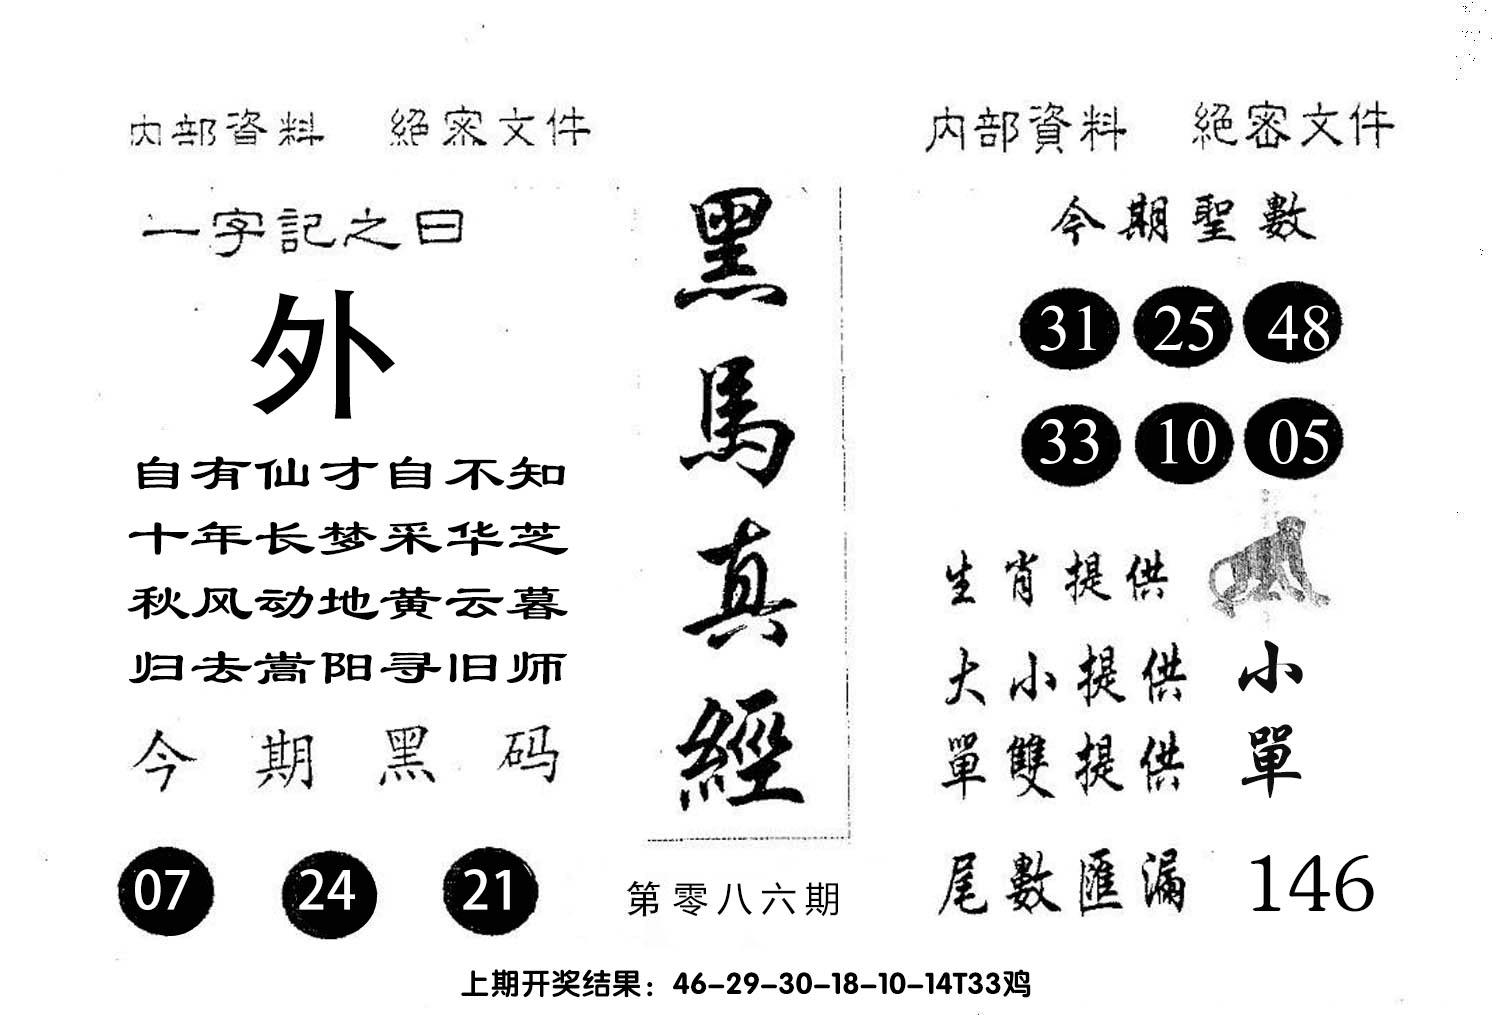 内部資料 絕密文件
一字記之曰
外
自有仙才自不知
十年长梦采华芝
秋风动地黄云暮
归去嵩阳寻旧师
今期黑码
07 24 21
黑馬真經
第零八六期
内部資料 絕密文件
今期聖數
31 25 48
33 10 05
生肖提供
大小提供 小
單雙提供 單
尾數匯漏 146
上期开奖结果：46-29-30-18-10-14T33鸡